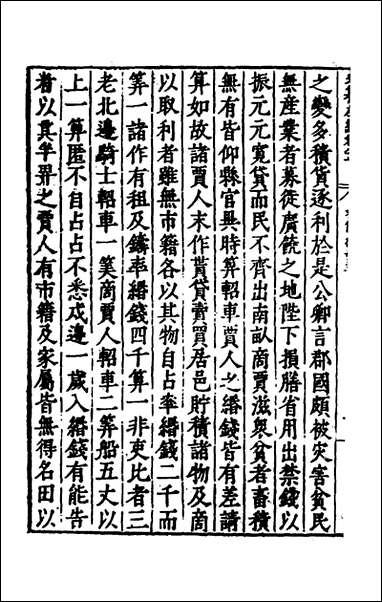 之變多積貨逐利於是公卿言郡國頗被災害貧民
無産業者募徙廣饒之地陛下損膳省用出禁錢以
振元元寛貸而民不齊出南畝商賈滋衆貧者畜積
無有皆仰縣官異時算軺車賈人之緡錢皆有差請
算如故諸賈人末作貰貸賣買居邑貯積諸物及商
以取利者雖無市籍各以其物自占率緡錢二千而
筭一諸作有租及鑄率緡錢四千算一非吏比者三
老北邊騎士軺車一筭商賈人軺車二筭船五丈以
上一算匿不自占占不悉戍邊一歲入緡錢有能告
者以其半畀之賈人有市籍及家屬皆無得名田以